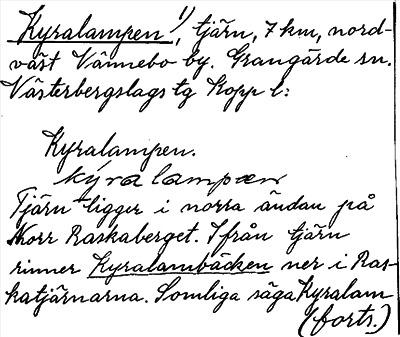 Kyralampen 1), tjärn, 7 km, nord-
väst Vännebo by. Grangärde sn.
Västerbergslags tg Kopp l:
Kyralampen.
kýralampæn
Tjärn ligger i norra ändan på
Norr Raskaberget. Ifrån tjärn
rinner Kyralambäcken ner i Ras-
katjärnarna. Somliga säga Kyralam
(forts.)